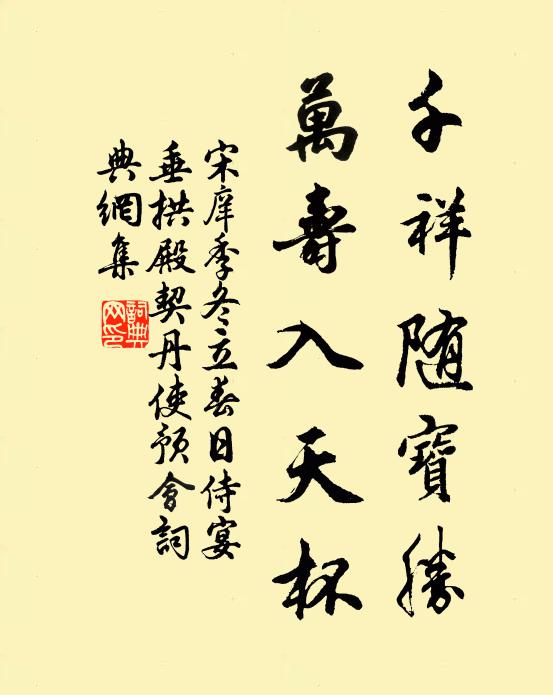 千祥随寶勝
萬壽入天杯
宋庠季冬立春日侍宴
垂拱殿契丹使預會詞
典網集
詞典網印